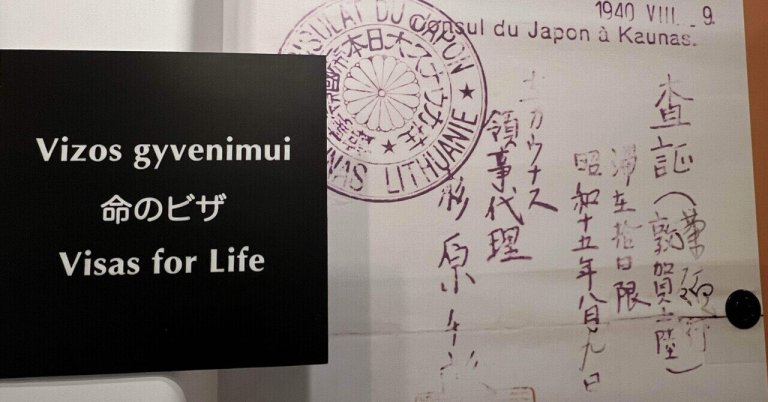 Vizos gyvenimui
命のビザ
Visas for Life
1940 VIII. 9.
Consul du Japon à Kaunas.
SULAT DU JAPON
NAS LITHUANIE
査証(敦賀上陸)
滞在拾日限
昭和十五年八月九日
カウナス
領事代理
杉原千